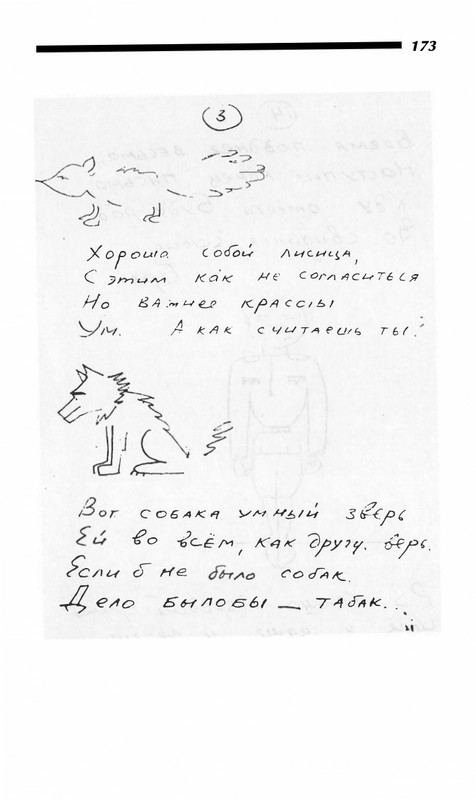 173
3
Хороша собой лисица,
С этим как не согласиться
Но важнея крассы
Ум. А как считаешь ты?
Вот собака умный зверь
Ей во всём, как другу. верь.
Если б не было собак.
Дело былобы _ табак...